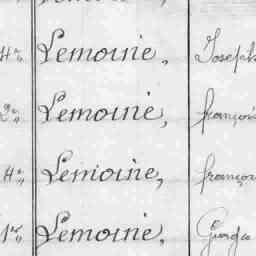 4e, Lemoine, Joseph
2e, Lemoine, françois
4e, Lemoine, françois
1er, Lemoine, Georges